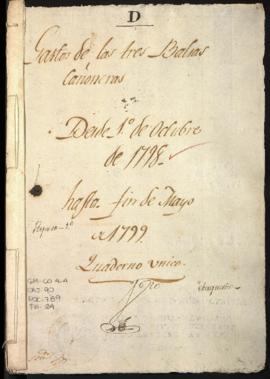 D
Gastos de las tres Balsas
Cañoneras
Desde 1.º de Octubre
de 1798.
hasta fin de Mayo
de 1799.
Quaderno unico.
GM-CO 4-A
CAJ 90
DOC 789